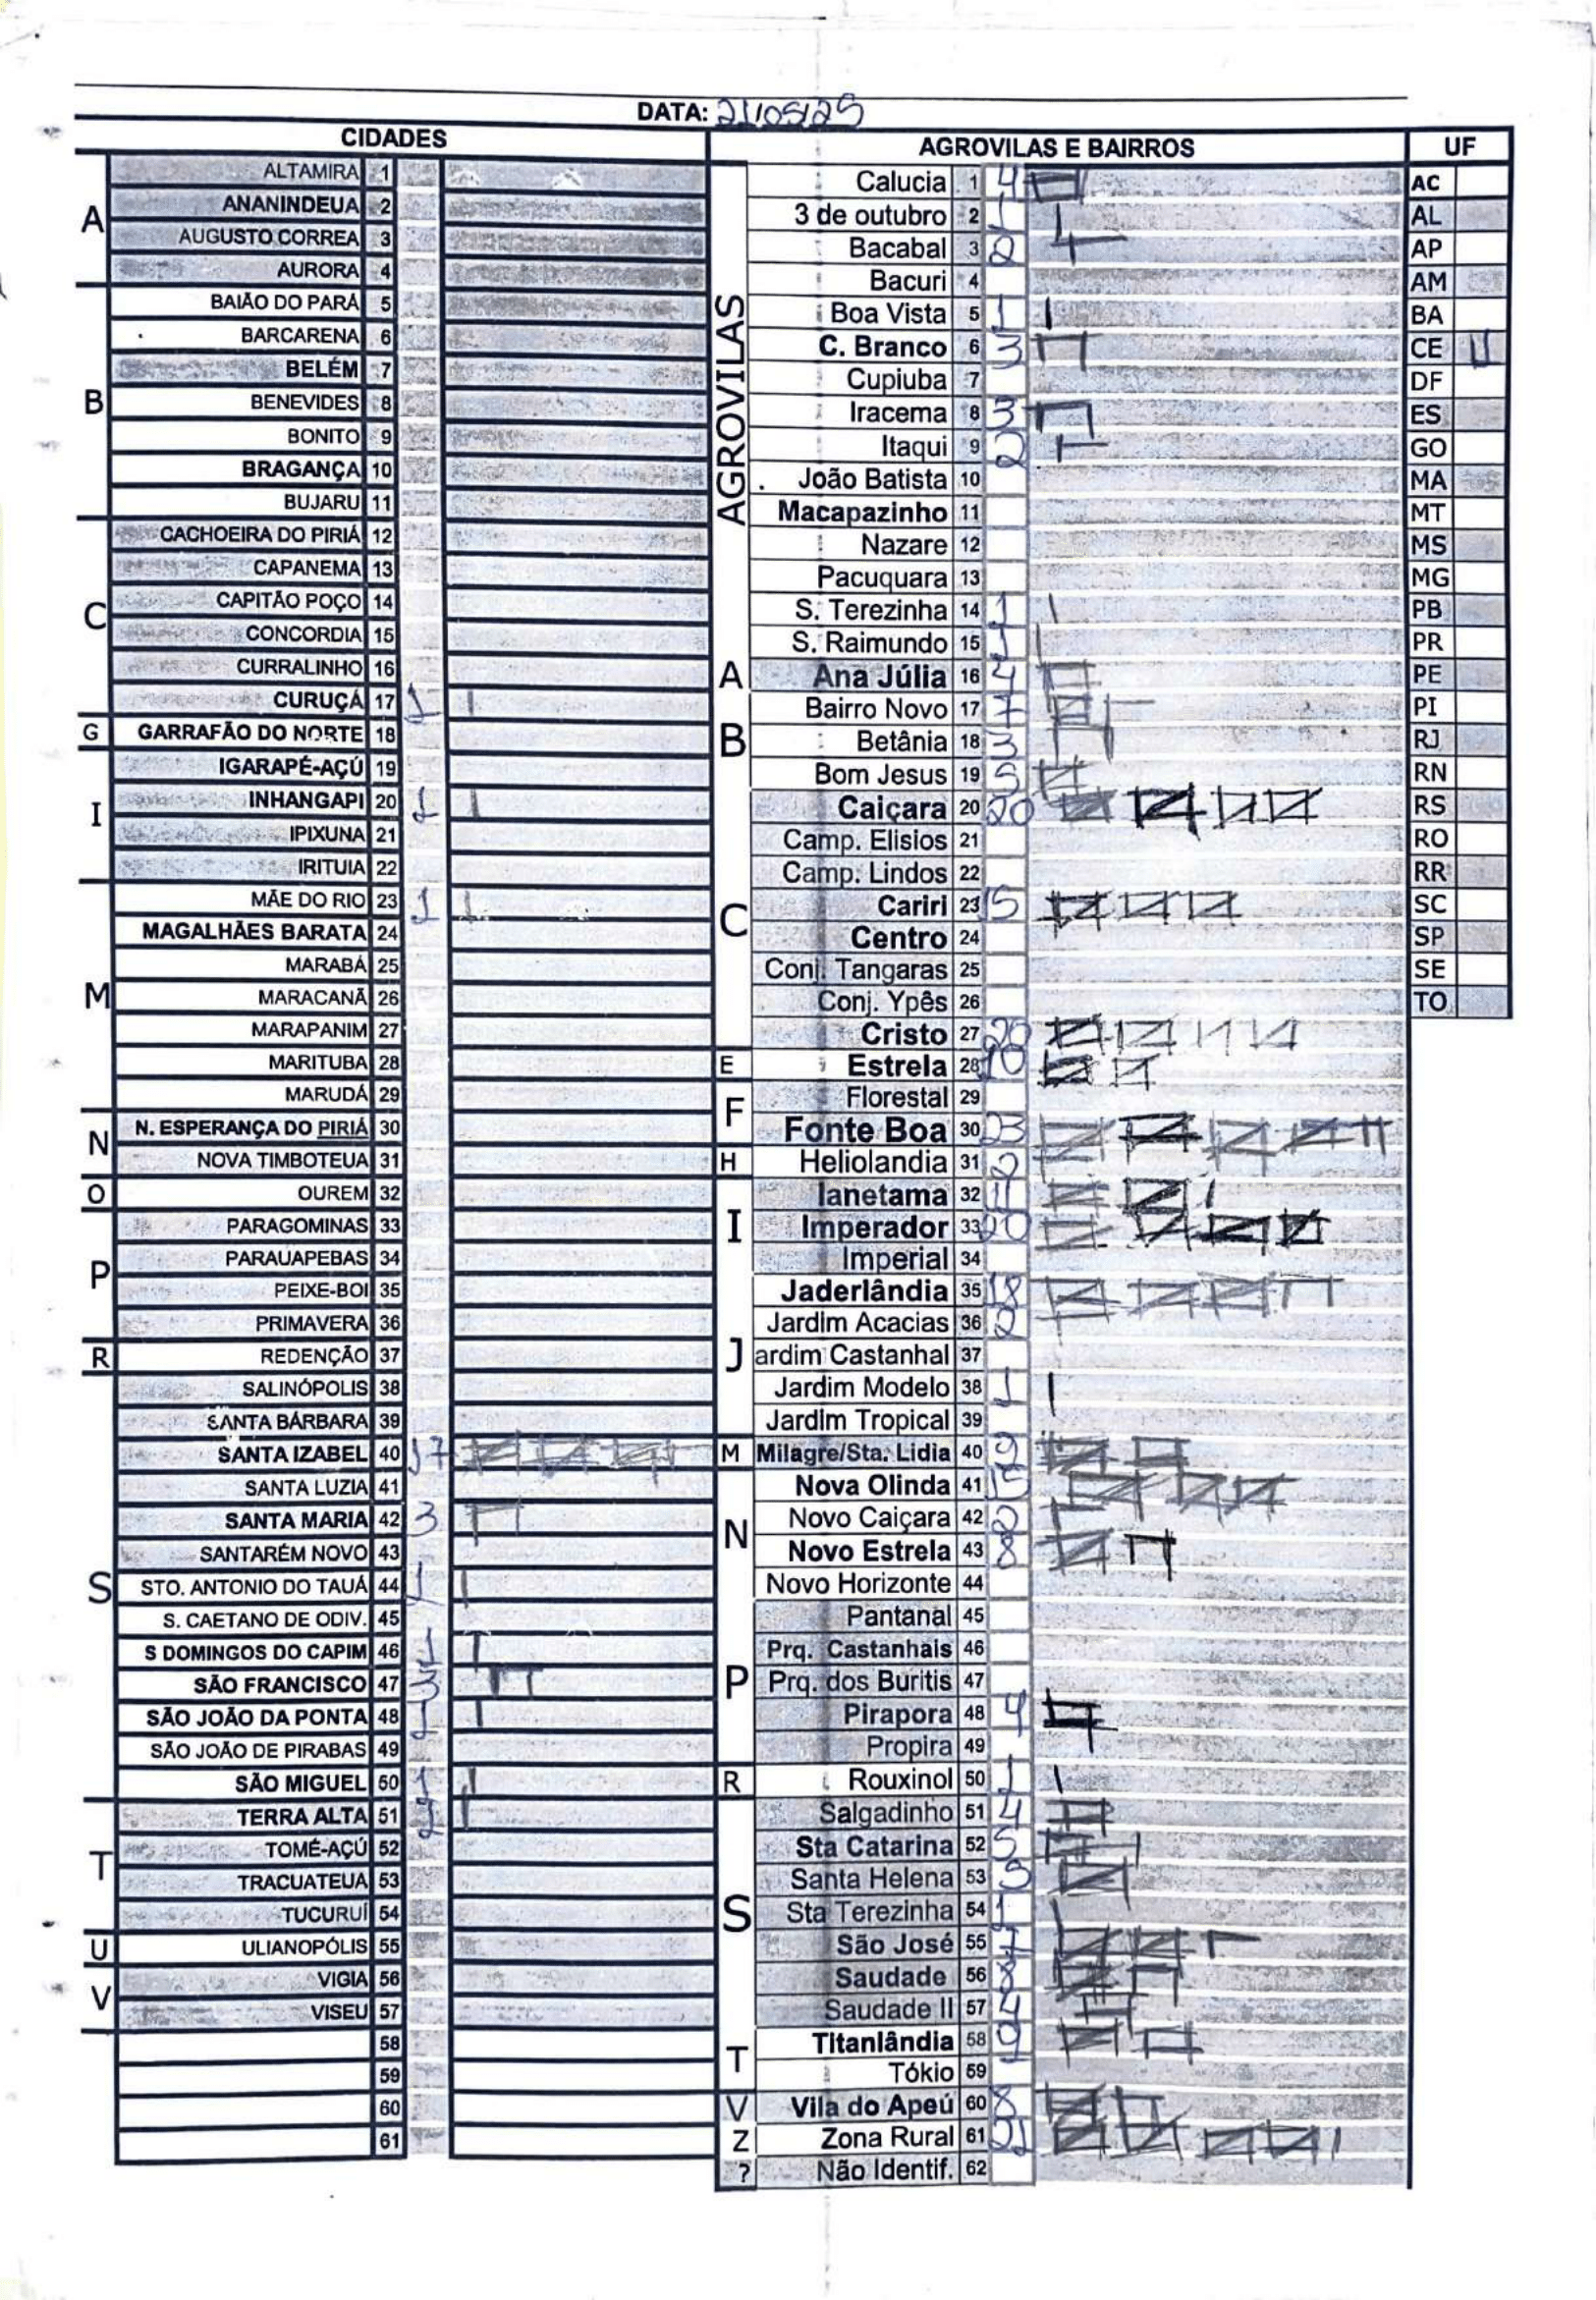 DATA: 21/05/25
CIDADES
A
ALTAMIRA 1
ANANINDEUA 2
AUGUSTO CORREA 3
AURORA 4
B
BAIÃO DO PARÁ 5
BARCARENA 6
BELÉM 7
BENEVIDES 8
BONITO 9
BRAGANÇA 10
BUJARU 11
C
CACHOEIRA DO PIRIÁ 12
CAPANEMA 13
CAPITÃO POÇO 14
CONCORDIA 15
CURRALINHO 16
CURUÇÁ 17 1
G
GARRAFÃO DO NORTE 18
I
IGARAPÉ-AÇÚ 19
INHANGAPI 20 1
IPIXUNA 21
IRITUIA 22
M
MÃE DO RIO 23 1
MAGALHÃES BARATA 24
MARABÁ 25
MARACANÃ 26
MARAPANIM 27
MARITUBA 28
MARUDÁ 29
N
N. ESPERANÇA DO PIRIÁ 30
NOVA TIMBOTEUA 31
O
OUREM 32
P
PARAGOMINAS 33
PARAUAPEBAS 34
PEIXE-BOI 35
PRIMAVERA 36
R
REDENÇÃO 37
S
SALINÓPOLIS 38
SANTA BÁRBARA 39
SANTA IZABEL 40 17
SANTA LUZIA 41
SANTA MARIA 42 3
SANTARÉM NOVO 43
STO. ANTONIO DO TAUÁ 44 1
S. CAETANO DE ODIV. 45
S DOMINGOS DO CAPIM 46 1
SÃO FRANCISCO 47 3
SÃO JOÃO DA PONTA 48 1
SÃO JOÃO DE PIRABAS 49
SÃO MIGUEL 50 1
T
TERRA ALTA 51
TOMÉ-AÇÚ 52
TRACUATEUA 53
TUCURUÍ 54
U
ULIANOPÓLIS 55
V
VIGIA 56
VISEU 57
58
59
60
61
AGROVILAS E BAIRROS
AGROVILAS
Calucia 1 4
3 de outubro 2 1
Bacabal 3 2
Bacuri 4
Boa Vista 5 1
C. Branco 6 3
Cupiuba 7
Iracema 8 3
Itaqui 9 2
João Batista 10
Macapazinho 11
Nazare 12
Pacuquara 13
S. Terezinha 14 1
S. Raimundo 15 1
A
Ana Júlia 16 4
B
Bairro Novo 17 7
Betânia 18 3
Bom Jesus 19 5
C
Caiçara 20 20
Camp. Elisios 21
Camp. Lindos 22
Cariri 23 15
Centro 24
Conj. Tangaras 25
Conj. Ypês 26
Cristo 27 20
E
Estrela 28 10
F
Florestal 29
Fonte Boa 30 23
H
Heliolandia 31
I
Ianetama 32 11
Imperador 33 20
Imperial 34
J
Jaderlândia 35 18
Jardim Acacias 36
Jardim Castanhal 37
Jardim Modelo 38 1
Jardim Tropical 39
M
Milagre/Sta. Lidia 40 9
N
Nova Olinda 41 15
Novo Caiçara 42
Novo Estrela 43 8
Novo Horizonte 44
P
Pantanal 45
Prq. Castanhais 46
Prq. dos Buritis 47
Pirapora 48 4
Propira 49
R
Rouxinol 50 1
S
Salgadinho 51 4
Sta Catarina 52 5
Santa Helena 53 5
Sta Terezinha 54 1
São José 55
Saudade 56 8
Saudade II 57 4
T
Titanlândia 58 9
Tókio 59
V
Vila do Apeú 60 8
Z
Zona Rural 61 21
?
Não Identif. 62
UF
AC
AL
AP
AM
BA
CE
DF
ES
GO
MA
MT
MS
MG
PB
PR
PE
PI
RJ
RN
RS
RO
RR
SC
SP
SE
TO